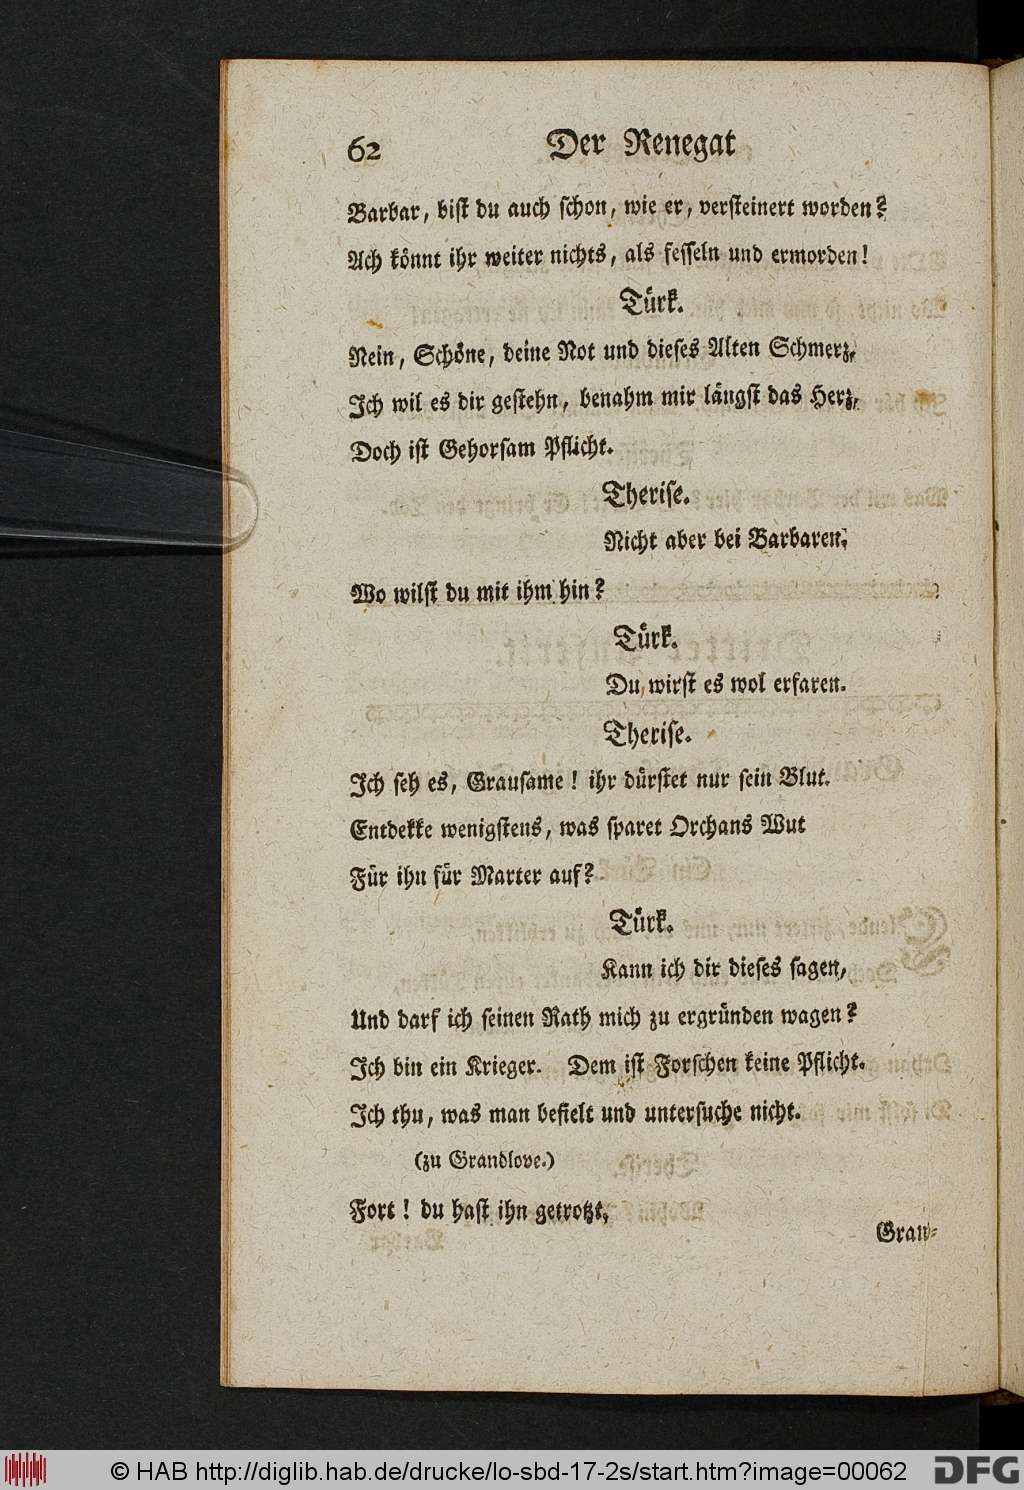 62 Der Renegat
Barbar, bist du auch schon, wie er, versteinert worden?
Ach könnt ihr weiter nichts, als fesseln und ermorden!
Türk.
Nein, Schöne, deine Not und dieses Alten Schmerz,
Ich wil es dir gestehn, benahm mir längst das Herz,
Doch ist Gehorsam Pflicht.
Therise.
Nicht aber bei Barbaren.
Wo wilst du mit ihm hin?
Türk.
Du wirst es wol erfaren.
Therise.
Ich seh es, Grausame! ihr dürstet nur sein Blut.
Entdekke wenigstens, was sparet Orchans Wut
Für ihn für Marter auf?
Türk.
Kann ich dir dieses sagen,
Und darf ich seinen Rath mich zu ergründen wagen?
Ich bin ein Krieger. Dem ist Forschen keine Pflicht.
Ich thu, was man befielt und untersuche nicht.
(zu Grandlove.)
Fort! du hast ihn getrotzt,
Gran-
© HAB http://diglib.hab.de/drucke/lo-sbd-17-2s/start.htm?image=00062
DFG